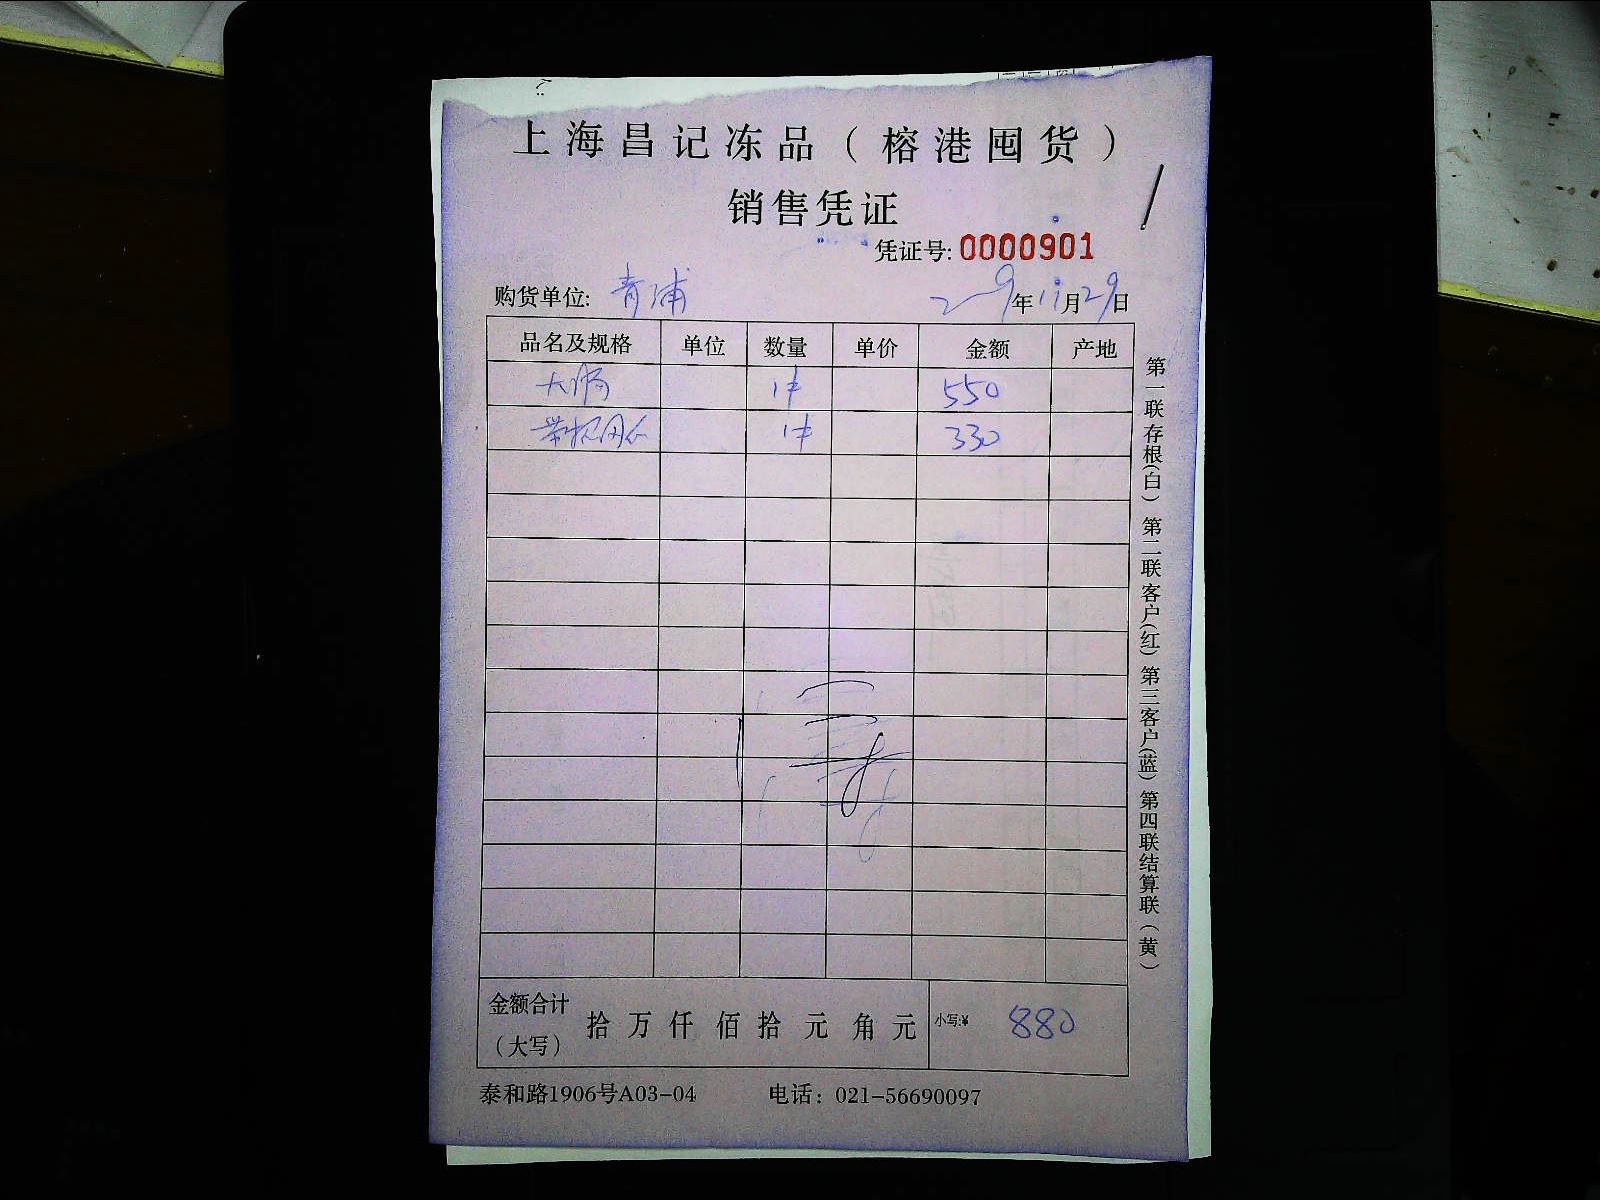 上海昌记冻品（榕港囤货）
销售凭证
凭证号: 0000901
购货单位: 青浦 年11月29日
品名及规格 单位 数量 单价 金额 产地
大肠 1件 550
1件 330
金额合计（大写） 拾 万 仟 佰 拾 元 角 元 小写:¥ 880
泰和路1906号A03-04 电话：021-56690097
第一联存根(白) 第二联客户(红) 第三客户(蓝) 第四联结算联(黄)